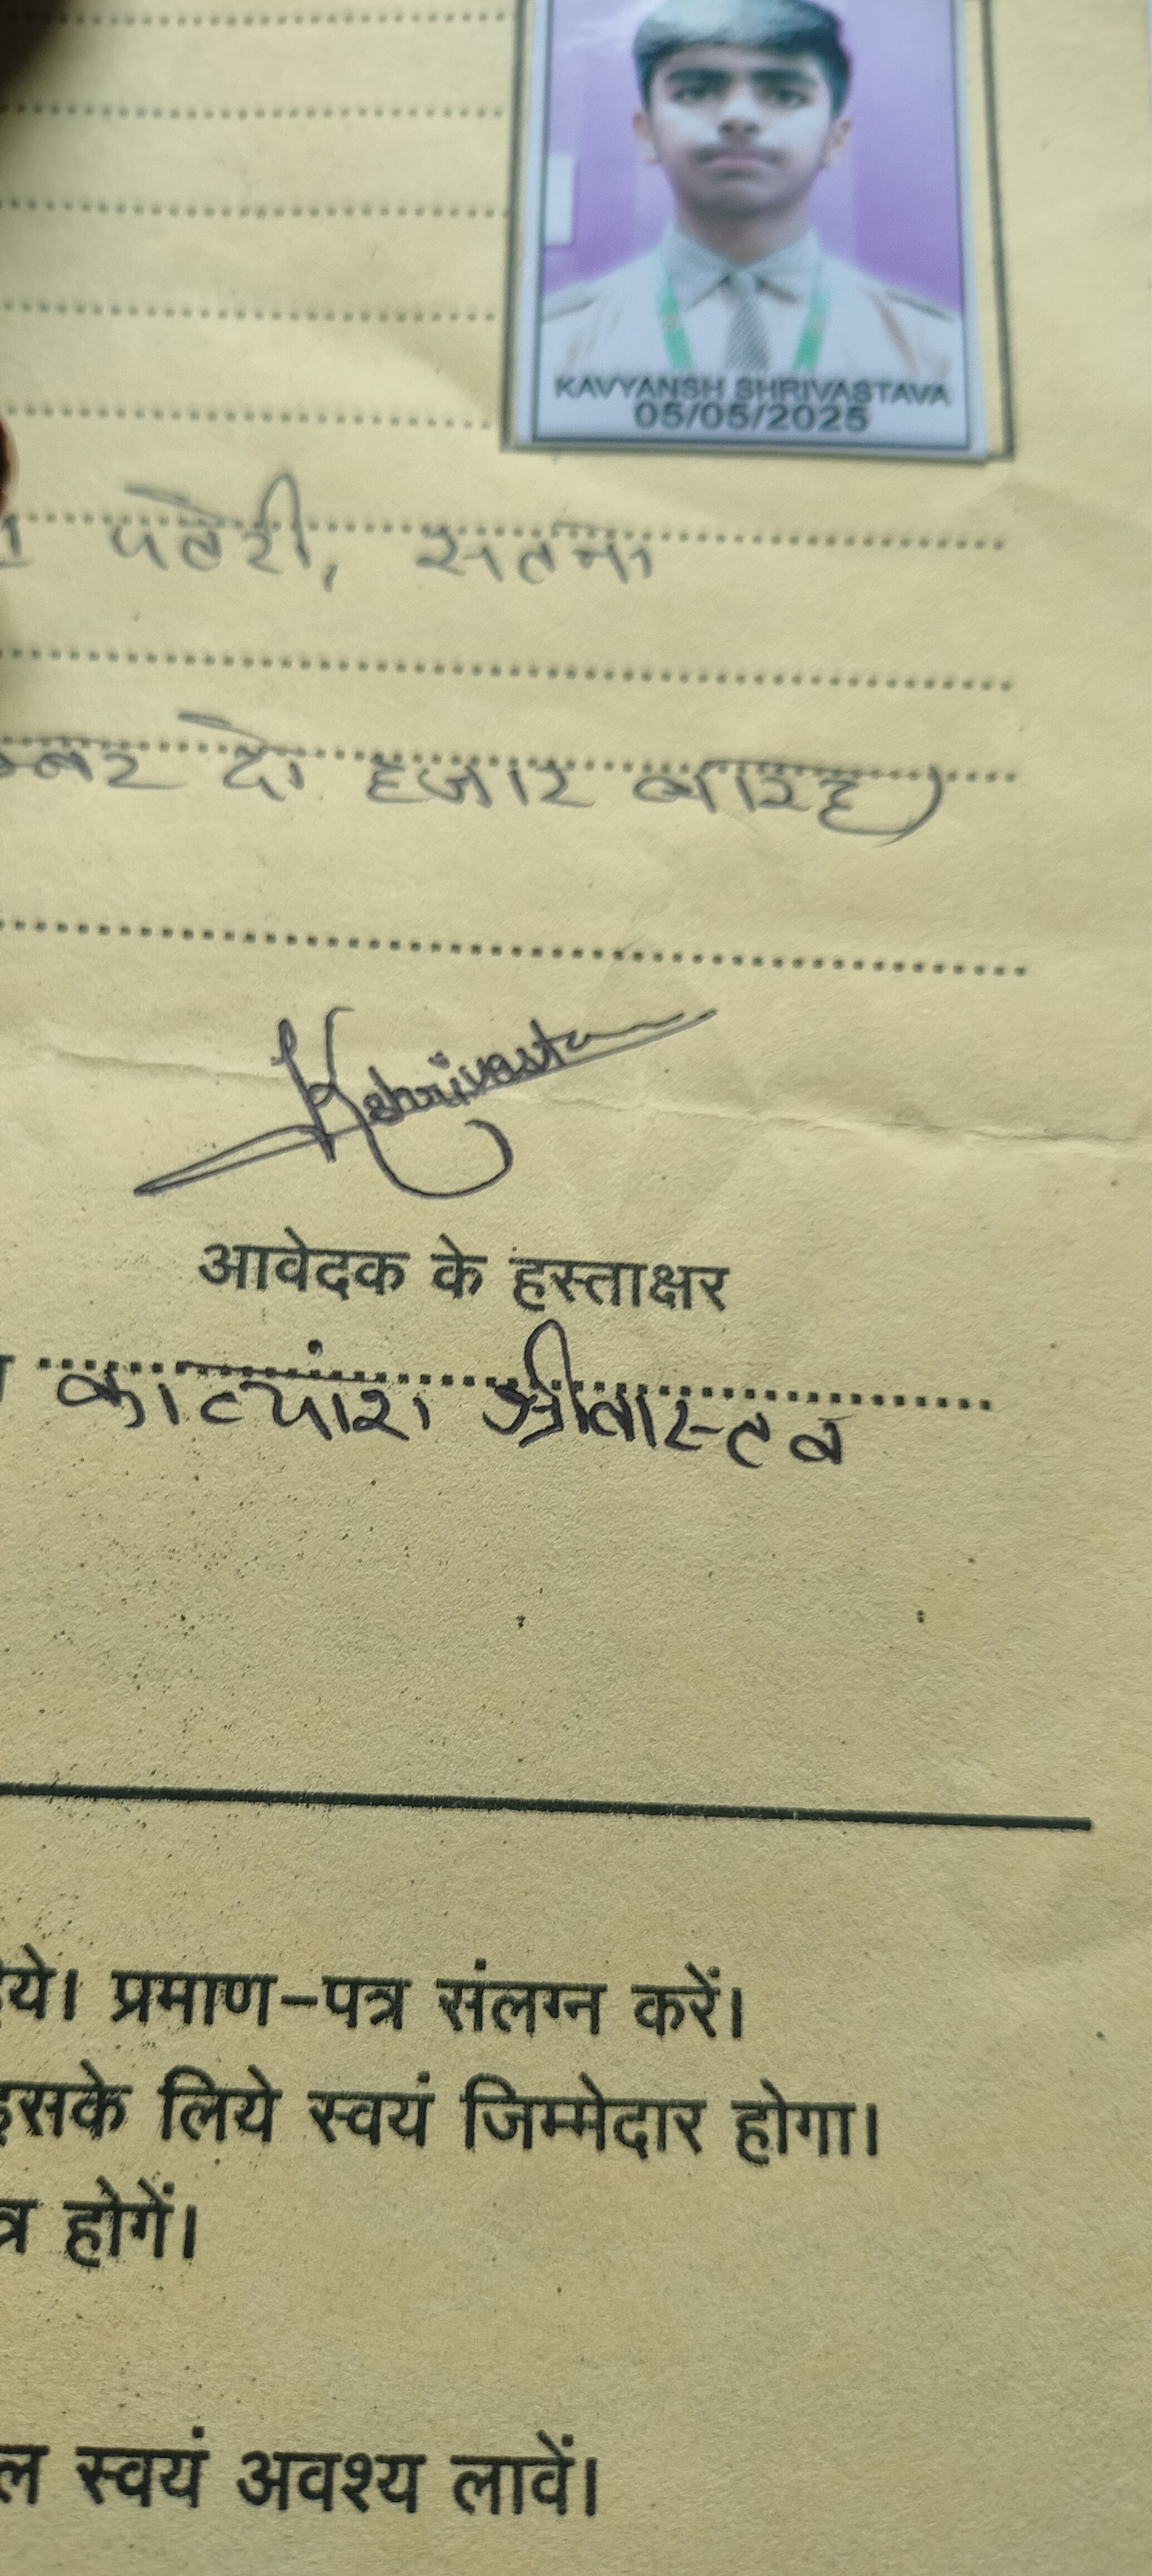 KAVYANSH SHRIVASTAVA
05/05/2025
पतेरी, सतना
दो हजार बारह)
Kshrivastava
आवेदक के हस्ताक्षर
काव्यांश श्रीवास्तव
प्रमाण-पत्र संलग्न करें।
इसके लिये स्वयं जिम्मेदार होगा।
होगें।
स्वयं अवश्य लावें।